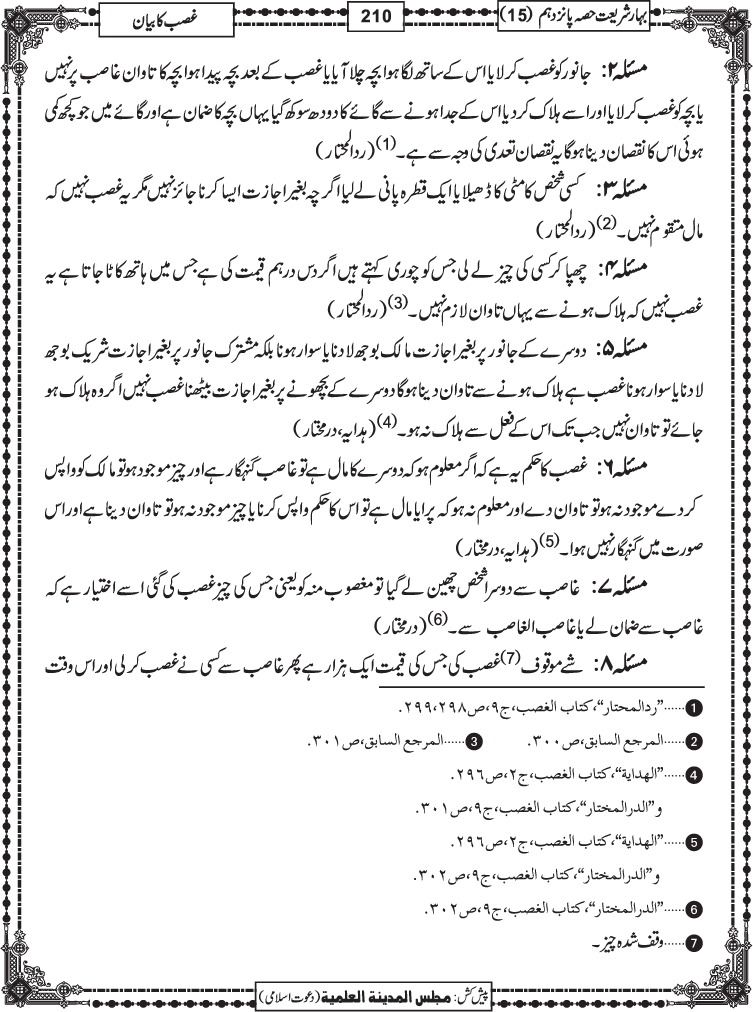 بہار شریعت حصہ پانزدہم (15)
210
غصب کا بیان
مسئلہ ۲: جانور کو غصب کر لایا اس کے ساتھ لگا ہوا بچہ چلا آیا یا غصب کے بعد بچہ پیدا ہوا بچہ کا تاوان غاصب پر نہیں
یا بچہ کو غصب کر لایا اور اسے ہلاک کر دیا اس کے جدا ہونے سے گائے کا دودھ سوکھ گیا یہاں بچہ کا ضمان ہے اور گائے میں جو کچھ کمی
ہوئی اس کا نقصان دینا ہوگا یہ نقصان تعدی کی وجہ سے ہے۔(1) (ردالمحتار)
مسئلہ ۳: کسی شخص کا مٹی کا ڈھیلا یا ایک قطرہ پانی لے لیا اگرچہ بغیر اجازت ایسا کرنا جائز نہیں مگر یہ غصب نہیں کہ
مال متقوم نہیں۔(2) (ردالمحتار)
مسئلہ ۴: چھپا کر کسی کی چیز لے لی جس کو چوری کہتے ہیں اگر دس درہم قیمت کی ہے جس میں ہاتھ کاٹا جاتا ہے یہ
غصب نہیں کہ ہلاک ہونے سے یہاں تاوان لازم نہیں۔(3) (ردالمحتار)
مسئلہ ۵: دوسرے کے جانور پر بغیر اجازت مالک بوجھ لادنا یا سوار ہونا بلکہ مشترک جانور پر بغیر اجازت شریک بوجھ
لادنا یا سوار ہونا غصب ہے ہلاک ہونے سے تاوان دینا ہوگا دوسرے کے بچھونے پر بغیر اجازت بیٹھنا غصب نہیں اگر وہ ہلاک ہو
جائے تو تاوان نہیں جب تک اس کے فعل سے ہلاک نہ ہو۔(4) (ہدایہ، درمختار)
مسئلہ ۶: غصب کا حکم یہ ہے کہ اگر معلوم ہو کہ دوسرے کا مال ہے تو غاصب گنہگار ہے اور چیز موجود ہو تو مالک کو واپس
کردے موجود نہ ہو تو تاوان دے اور معلوم نہ ہو کہ پرایا مال ہے تو اس کا حکم واپس کرنا یا چیز موجود نہ ہو تو تاوان دینا ہے اور اس
صورت میں گنہگار نہیں ہوا۔(5) (ہدایہ، درمختار)
مسئلہ ۷: غاصب سے دوسرا شخص چھین لے گیا تو مغصوب منہ کو یعنی جس کی چیز غصب کی گئی اسے اختیار ہے کہ
غاصب سے ضمان لے یا غاصب الغاصب سے۔(6) (درمختار)
مسئلہ ۸: شے موقوف(7) غصب کی جس کی قیمت ایک ہزار ہے پھر غاصب سے کسی نے غصب کر لی اور اس وقت
1......”ردالمحتار“، کتاب الغصب، ج۹، ص۲۹۸، ۲۹۹.
2......المرجع السابق، ص۳۰۰. 3......المرجع السابق، ص۳۰۱.
4......”الهداية“، كتاب الغصب، ج۲، ص۲۹۶.
و”الدرالمختار“، كتاب الغصب، ج۹، ص۳۰۱.
5......”الهداية“، كتاب الغصب، ج۲، ص۲۹۶.
و”الدرالمختار“، كتاب الغصب، ج۹، ص۳۰۲.
6......”الدرالمختار“، كتاب الغصب، ج۹، ص۳۰۲.
7......وقف شدہ چیز۔
پیش کش: مجلس المدينة العلمية (دعوت اسلامی)